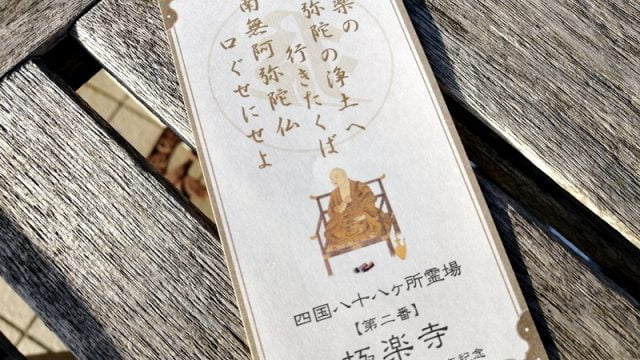 楽の
弥陀の浄土へ
行きたくば
南無阿弥陀仏
口ぐせにせよ
四国八十八ヶ所霊場
【第二番】
極楽寺
記念